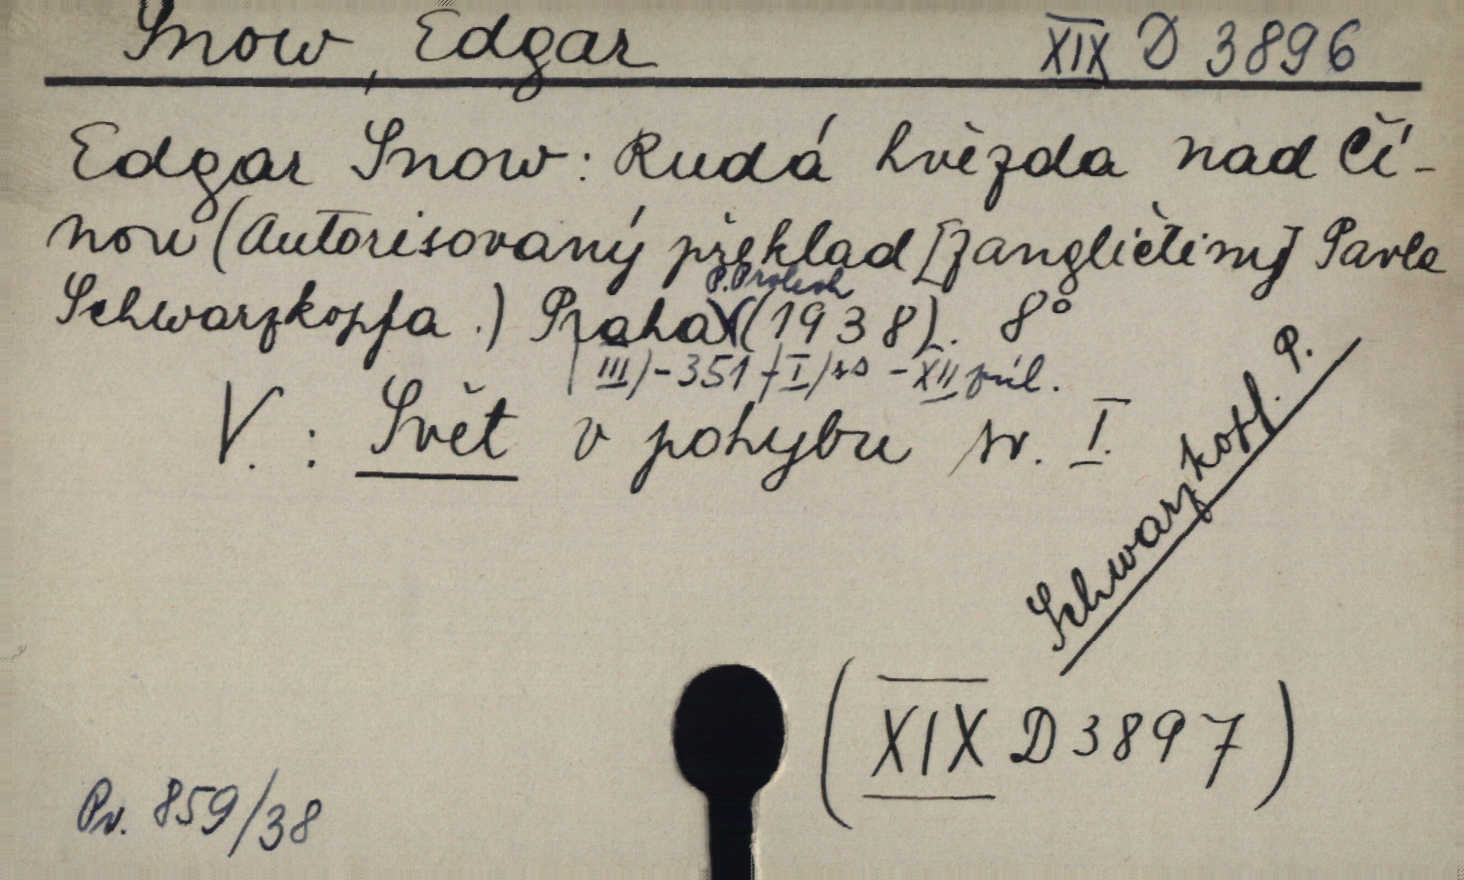 Snow, Edgar XIX D 3896
Edgar Snow: Rudá hvězda nad Čí-
nou (Autorisovaný překlad [z angličtiny] Pavla
P. Prokop
Schwarzkopfa.) Praha (1938). 8°
(III)-351+(I) ss - XII příl.
V.: Svět v pohybu sv. I.
Schwarzkopf. P.
(XIX D 3897)
Pv. 859/38